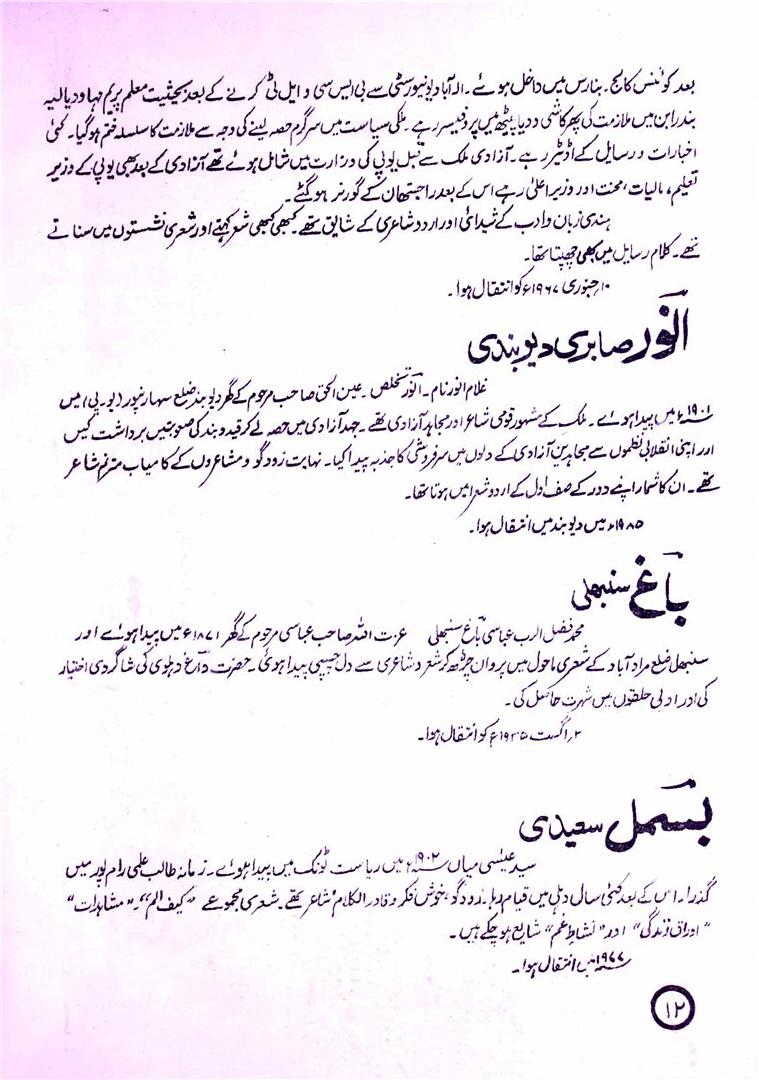 بعد کوئنس کالج۔ بنارس میں داخل ہوئے۔ الہ آباد یونیورسٹی سے بی ایس سی و ایل ٹی کرنے کے بعد بحیثیت معلم پریم مہاودیالیہ
بندرابن میں ملازمت کی پھر کاشی ودیا پیٹھ میں پروفیسر رہے۔ ملکی سیاست میں سرگرم حصہ لینے کی وجہ سے ملازمت کا سلسلہ ختم ہوگیا۔ کئی
اخبارات و رسایل کے اڈیٹر رہے۔ آزادی ملک سے قبل یوپی کی وزارت میں شامل ہوئے تھے آزادی کے بعد بھی یوپی کے وزیر
تعلیم، مالیات، محنت اور وزیر اعلیٰ رہے اس کے بعد راجستھان کے گورنر ہوگئے۔
ہندی زبان و ادب کے شیدائی اور اردو شاعری کے شایق تھے۔ کبھی کبھی شعر کہتے اور شعری نشستوں میں سناتے
تھے۔ کلام رسایل میں بھی چھپتا تھا۔
۱۰؍ جنوری ۱۹۶۷ء کو انتقال ہوا۔
انور صابری دیوبندی
غلام انور نام۔ انور تخلص۔ عین الحق صاحب مرحوم کے گھر دیوبند ضلع سہارنپور (یو۔پی) میں
۱۹۰۱ء میں پیدا ہوئے۔ ملک کے مشہور قومی شاعر اور مجاہد آزادی تھے۔ جہد آزادی میں حصہ لے کر قید و بند کی صعوبتیں برداشت کیں
اور اپنی انقلابی نظموں سے مجاہدین آزادی کے دلوں میں سرفروشی کا جذبہ پیدا کیا۔ نہایت زود گو و مشاعروں کے کامیاب مترنم شاعر
تھے۔ ان کا شمار اپنے دور کے صف اول کے اردو شعرا میں ہوتا تھا۔
۱۹۸۵ء میں دیوبند میں انتقال ہوا۔
باغ سنبھلی
محمد فضل الرب عباسی باغ سنبھلی عزت اللہ صاحب عباسی مرحوم کے گھر ۱۸۷۱ء میں پیدا ہوئے اور
سنبھل ضلع مرادآباد کے شعری ماحول میں پروان چڑھ کر شعر و شاعری سے دل چسپی پیدا ہوئی۔ حضرت داغ دہلوی کی شاگردی اختیار
کی اور ادبی حلقوں میں شہرت حاصل کی۔
۲؍ اگست کو انتقال ہوا۔
بسمل سعیدی
سید عیسیٰ میاں ۱۹۰۲ء میں ریاست ٹونک میں پیدا ہوئے۔ زمانہ طالب علمی رام پور میں
گذرا۔ اس کے بعد کئی سال دہلی میں قیام رہا۔ زود گو، خوش فکر و قادر الکلام شاعر تھے۔ شعری مجموعے "کیف الم"۔ "مشاہدات"
"اوراق زندگی" اور "نشاط غم" شایع ہو چکے ہیں۔
۱۹۷۷ء میں انتقال ہوا۔
۱۲